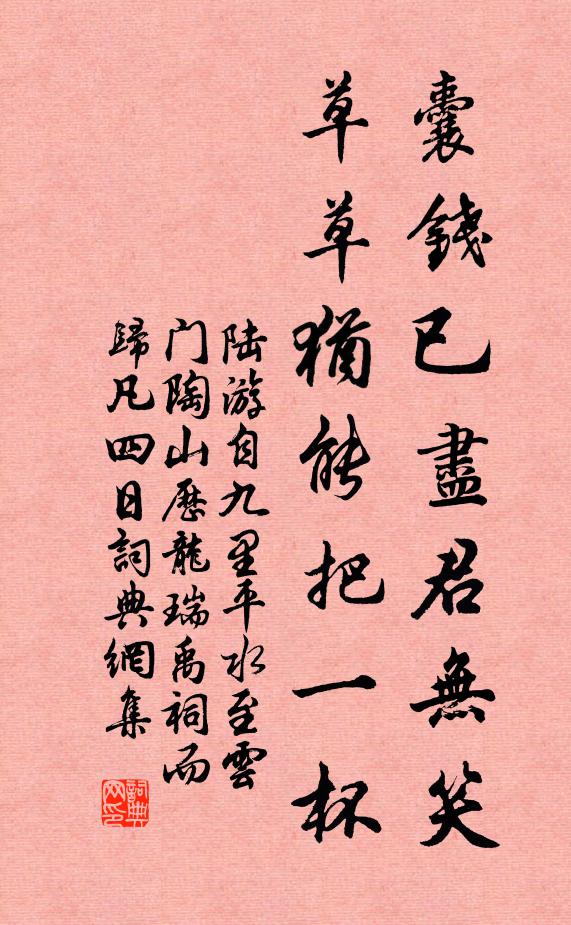 囊錢已盡君無笑
草草猶能把一杯
陆游自九里平水至雲
门陶山歷龍瑞禹祠而
歸凡四日詞典網集
詞典網印